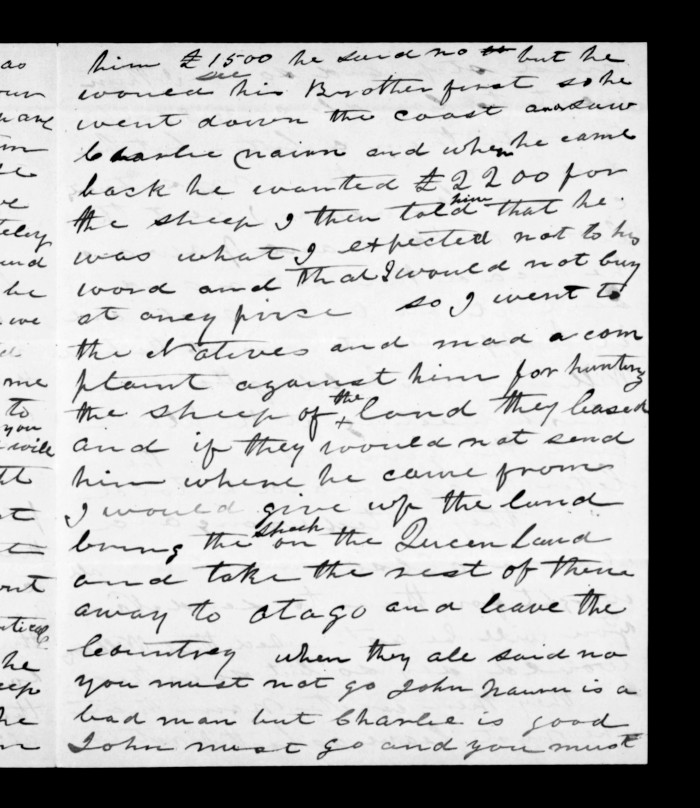 him £1500 he said no but he
would see his Brother first so he
went down the coast and saw
Charlie Nairn and when he came
back he wanted £2200 for
the sheep I then told him that he
was what I expected not to his
word and that I would not buy
at aney pirce so I went to
the Natives and mad a com
plaint against him for hunting
the sheep of the land they leased
and if they would not send
him where he came from
I would give up the land
bring the sheek on the Queen Land
and take the rest of theme
away to Otago and leave the
Countrey when they all said no
you must not go John Nairn is a
bad man but Charlie is good
John must go and you must
ao
our
me
to
you
will
he
we